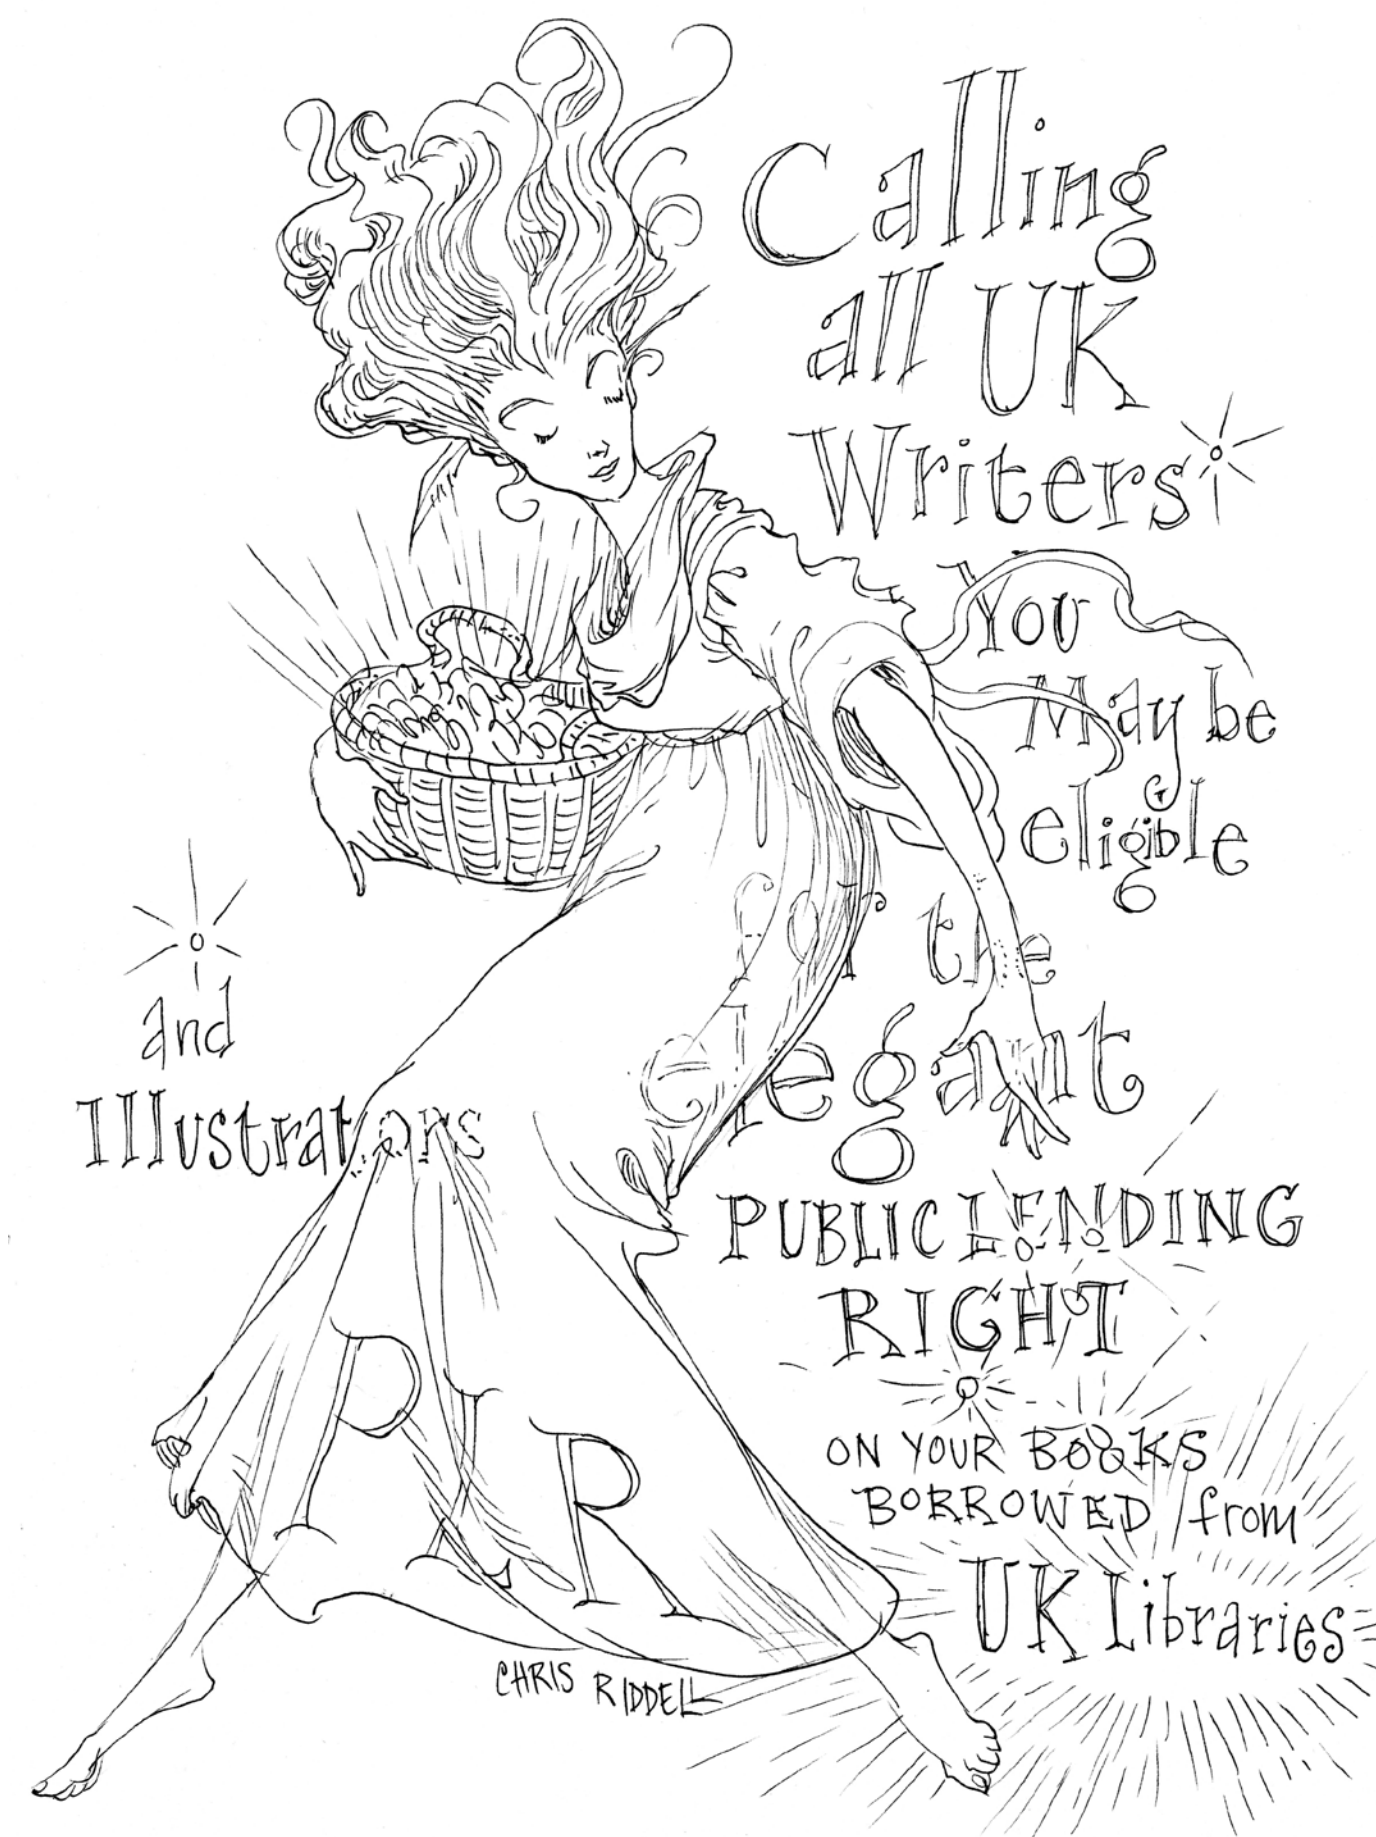 Calling
all UK
Writers
and
Illustrators
You
May be
eligible
for the
elegant
PUBLIC LENDING
RIGHT
ON YOUR BOOKS
BORROWED from
UK Libraries
PLR
CHRIS RIDDELL